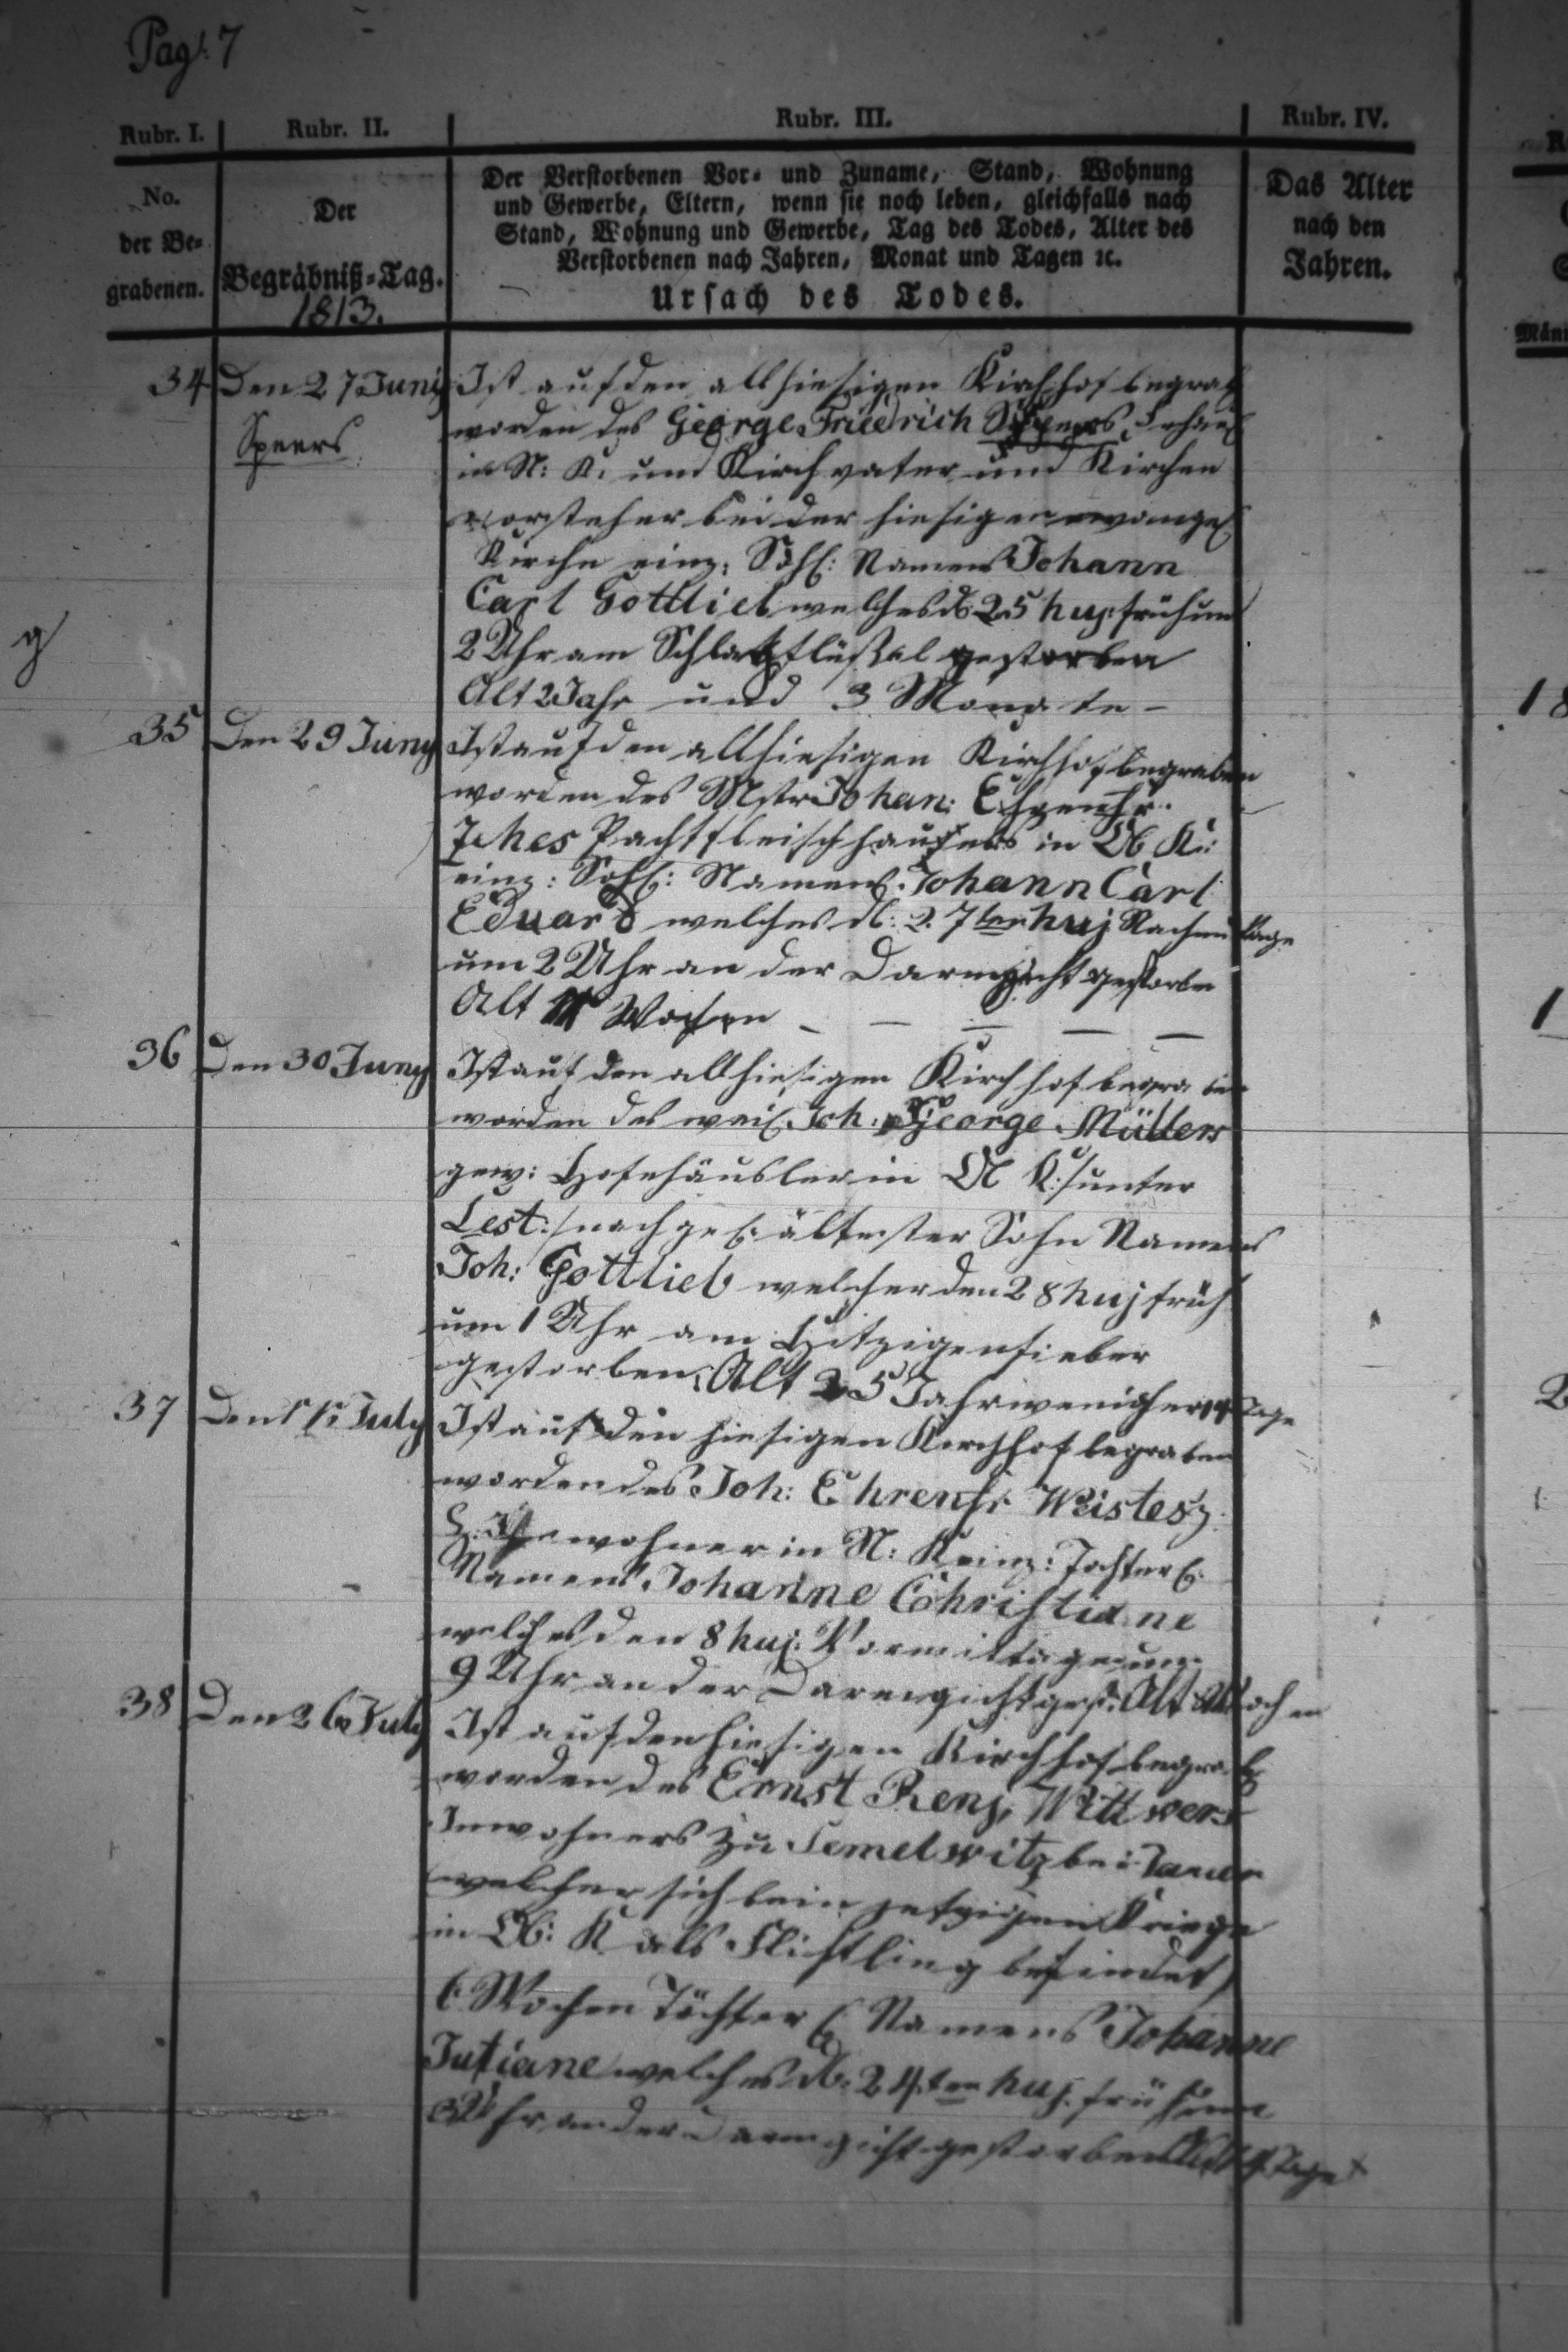 Pag: 7
Rubr. I. Rubr. II. Rubr. III. Rubr. IV.
No. der Be-grabenen.
Der Begräbniß-Tag. 1813.
Der Verstorbenen Vor- und Zuname, Stand, Wohnung
und Gewerbe, Eltern, wenn sie noch leben, gleichfalls nach
Stand, Wohnung und Gewerbe, Tag des Todes, Alter des
Verstorbenen nach Jahren, Monat und Tagen ꝛc.
Ursach des Todes.
Das Alter nach den Jahren.
34 Den 27 Juny Ist auf den allhiesigen Kirchhof begrab
Speers worden des George Friedrich Speers
in N: K: und Kirchvater und Kirchen
vorsteher bei der hiesigen evangel
Kirche einz: Söhl: Namens Johann
Carl Gottlieb welches d: 25 huj: früh um
2 Uhr am Schlagflüßel gestorben
Alt 2 Jahr und 3 Monate –
35 Den 29 Juny Ist auf den allhiesigen Kirchhof begraben
worden des Mstr Johan: Ehrenfr:
Pachtfleischhauers in Ob K:
einz: Söhl: Namens Johann Carl
Eduard welches d: 27ten huj Nachmittage
um 2 Uhr an der Darmgicht gestorben
Alt Wochen – – – – –
36 Den 30 Juny Ist auf den allhiesigen Kirchhof begraben
worden des weil: Joh: George Müllers
gew: Hofehäusler in Ob K: /unter
Lest:/ nachgel: ältester Sohn Namens
Joh: Gottlieb welcher den 28 huj früh
um 1 Uhr am Hitzigenfieber
gestorben. Alt 25 Jahr weniger 14 Tage
37 Den July Ist auf den hiesigen Kirchhof begraben
worden des Joh: Ehrenfr
wohner in N: K einz: Töchterl:
Namens Johanne Christiane
welches den 8 huj: Vormittage um
9 Uhr an der Darmgicht gest: Alt Wochen
38 Den 26 July Ist auf den hiesigen Kirchhof begrab
worden des Ernst Benj. Wittwers
Inwohners zu Semelwitz bei Jauer
welcher sich bein jetzigen Kriege
in Ob: K als Flichtling befindet/
6 Wochen Töchterl Namens Johanne
Juliane welches d: 24ten huj. früh um
3 Uhr an der Darmgicht gestorben Tage